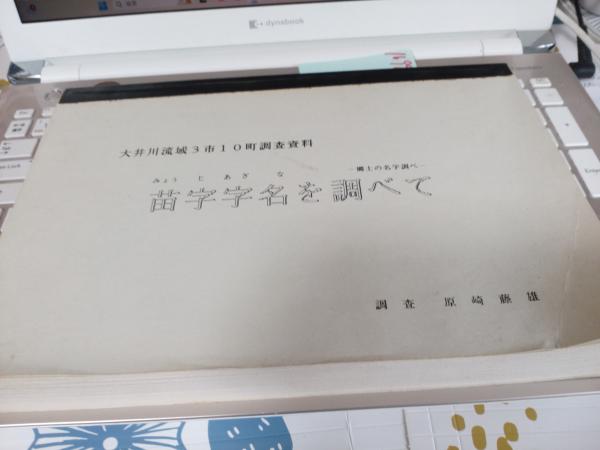 dynabook
大井川流域3市10町調査資料
―郷土の名字調べ―
みょう じ あざ な
苗字字名を調べて
調査 原崎藤雄
Enter